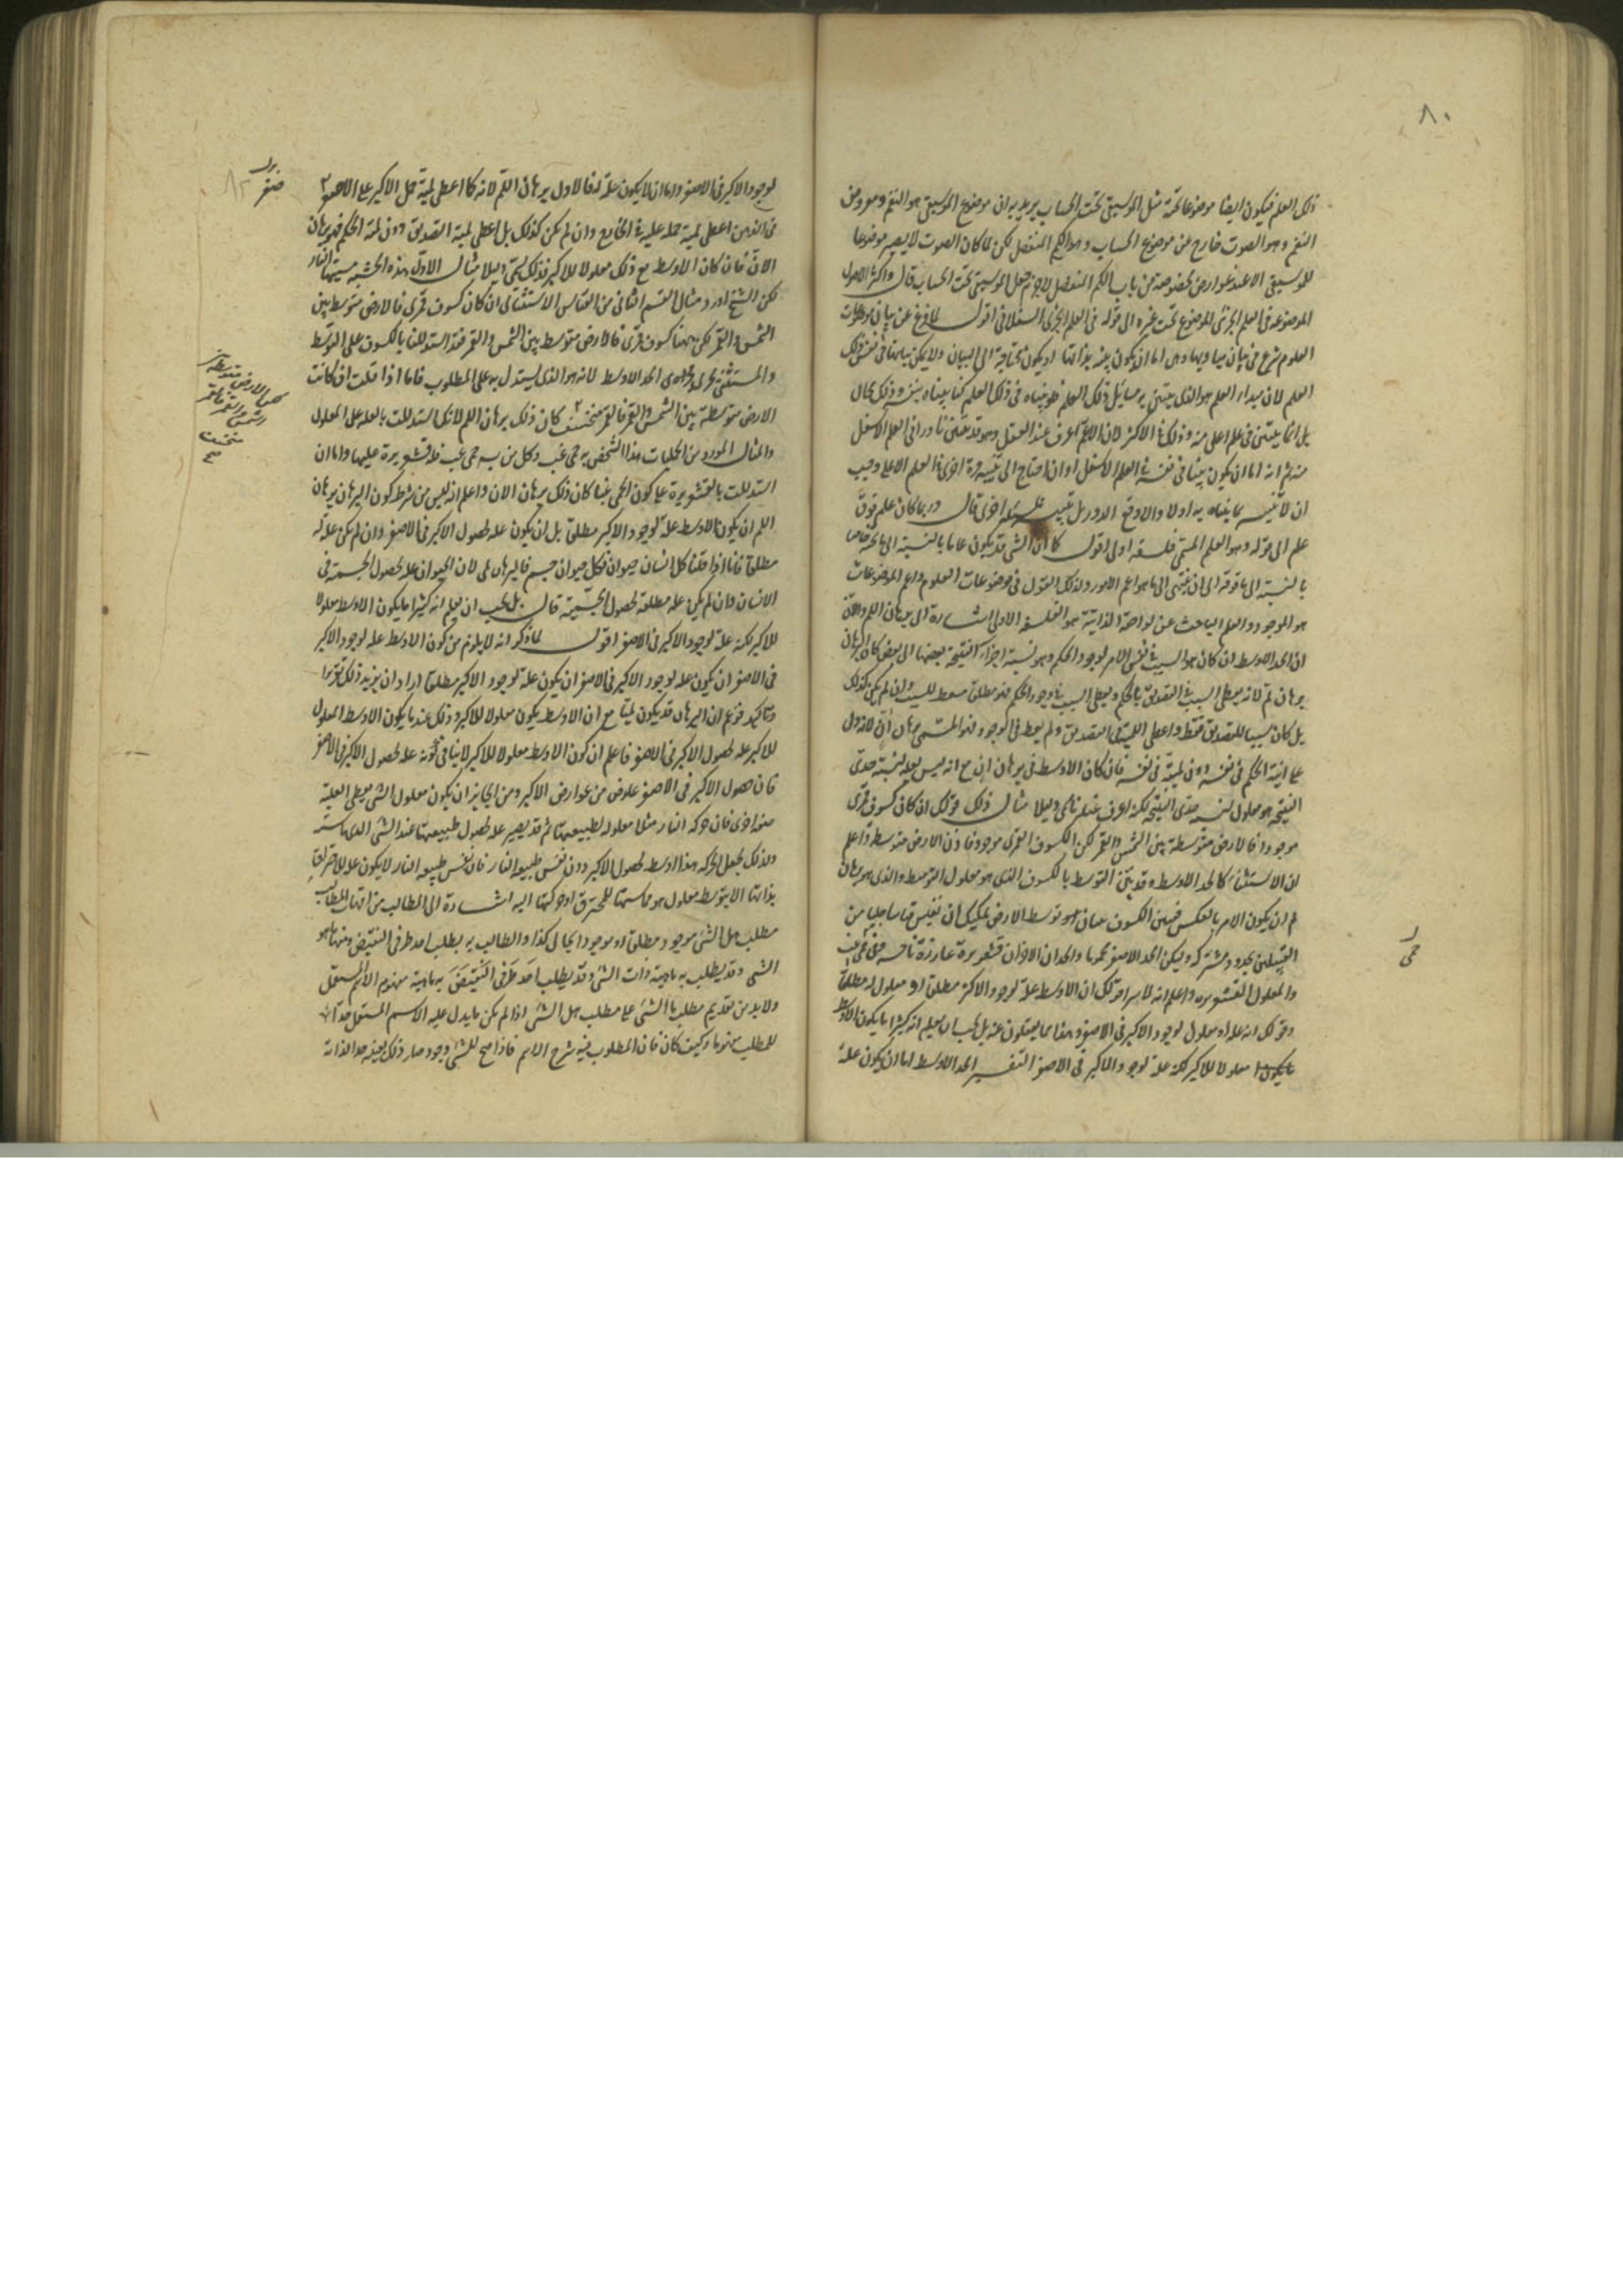 ٨٠
ذلك العلم فيكون ايضا موضوعا تحته مثل الموسيقى تحت الحساب يريد به ان موضوع الموسيقى هو النغم ومعروض
النغم وهو الصوت خارج عن موضوع الحساب وهو الكم المنفصل لكن لما كان الصوت لا يصير موضوعا
للموسيقى الا عند عوارض مخصوصة من باب الكم المنفصل لاجرم جعل الموسيقى تحت الحساب قال واكثر الاصول
الموضوعة في العلم الجزئي الموضوع تحت غيره الى قوله في العلم الجزئي السفلاني اقول لما فرغ عن بيان موضوعات
العلوم شرع في بيان مباديها وهي اما ان يكون بينة بذاتها او يكون محتاجة الى البيان ولا يمكن بيانها في نفس ذلك
العلم لان مبدأ العلم هو الذي يبتني به مسائل ذلك العلم فلو بيناه في ذلك العلم لكنا بيناه بنفسه وذلك محال
بل انما يبتنى في علم اعلى منه وذلك في الاكثر لان الاعم اعرف عند العقل وهو قد يتفق نادرا في العلم الاسفل
منه ثم انه اما ان يكون بينا في نفسه في العلم الاسفل او ان احتاج الى تبينه مرة اخرى في العلم الاعلى وجب
ان لا تبينه بما بيناه به اولا والا وقع الدور بل اخرى قال وربما كان علم فوق
علم الى قوله وهو العلم المسمى فلسفة اولى اقول كما ان الشي قد يكون عاما بالنسبة الى ما تحته خاصا
بالنسبة الى ما فوقه الى ان ينتهى الى ما هو اعم الامور وكذلك القول في موضوعات العلوم واعم الموضوعات
هو الموجود والعلم الباحث عن لواحقه الذاتية هو الفلسفة الاولى اشارة الى برهان اللم والان
ان الحد الاوسط ان كان هو السبب في نفس الامر لوجود الحكم وهو نسبة اجزاء النتيجة بعضها الى بعض كان البرهان
برهان لم لانه يعطى السبب في التصديق بالحكم ويعطى السبب في وجود الحكم فهو مطلقا معط للسبب وان لم يكن كذلك
بل كان سببا للتصديق فقط واعطى اللمية في التصديق ولم يعط في الوجود فهو المسمى برهان ان لانه دل
على انية الحكم في نفسه دون لميته في نفسه فان كان الاوسط في برهان ان مع انه ليس بعلة لنسبة حدى
النتيجة هو معلول لنسبة حدى النتيجة لكنه اعرف عندنا سمى دليلا مثال ذلك قولك ان كان كسوف قمرى
موجودا فالارض متوسطة بين الشمس والقمر لكن الكسوف القمرى موجود فاذن الارض متوسطة واعلم
ان الاستثناء كالحد الاوسط وقد بين التوسط بالكسوف الذي هو معلول التوسط والذي هو برهان
لم ان يكون الامر بالعكس فيبين الكسوف ببيان توسط الارض يمكنك ان تقيس قياسا حمليا من
القبيلين بحدود مشتركة وليكن الحد الاصغر محموما والحدان الاخران قشعريرة غارزة ناخسة حمى غب
والمعلول القشعريرة واعلم انه لا سواء قولك ان الاوسط علة لوجود الاكبر مطلقا او معلول له مطلقا
وقولك انه علة او معلول لوجود الاكبر في الاصغر وهذا مما يغفلون عنه بل يجب ان يعلم انه كثيرا ما يكون الاوسط
معلولا للاكبر لكنه علة لوجود الاكبر في الاصغر التفسير الحد الاوسط اما ان يكون علة
حمى
لوجود الاكبر في الاصغر واما ان لا يكون علة له فالاول برهان اللم لانه كما اعطى لمية حمل الاكبر على الاصغر
في الذهن اعطى لمية حمله عليه في الخارج وان لم يكن كذلك بل اعطى لمية التصديق دون لمية الحكم فهو برهان
الان فان كان الاوسط مع ذلك معلولا للاكبر فذلك يسمى دليلا مثال الاول هذه الخشبة مسها النار
لكن الشيخ اورد مثال القسم الثاني من القياس الاستثنائي ان كان كسوف قمرى فالارض متوسط بين
الشمس والقمر لكن ههنا كسوف قمرى فالارض متوسط بين الشمس والقمر فقد استدللنا بالكسوف على التوسط
والمستثنى مجرى الحد الاوسط لانه هو الذي يستدل به على المطلوب فاما اذا قلت ان كانت
الارض متوسطة بين الشمس والقمر فالقمر منخسف كان ذلك برهان اللم لانك استدللت بالعلة على المعلول
والمثال المورد من الحمليات هذا الشخص به حمى غب وكل من به حمى غب فله قشعريرة عليها واما ان
استدللت بالقشعريرة على كون الحمى غبا كان ذلك برهان الان واعلم انه ليس من شرط كون البرهان برهان
اللم ان يكون الاوسط علة لوجود الاكبر مطلقا بل ان يكون علة لحصول الاكبر في الاصغر وان لم يكن علة له
مطلقا فانا اذا قلنا كل انسان حيوان وكل حيوان جسم فالبرهان لمى لان الحيوان علة لحصول الجسمية في
الانسان وان لم يكن علة مطلقة لحصول الجسمية قال بل يجب ان يعلم انه كثيرا ما يكون الاوسط معلولا
للاكبر لكنه علة لوجود الاكبر في الاصغر اقول لما ذكر انه لا يلزم من كون الاوسط علة لوجود الاكبر
في الاصغر ان يكون علة لوجود الاكبر في الاصغر ان يكون علة لوجود الاكبر مطلقا اراد ان يزيد ذلك تقريرا
وتاكيدا فزعم ان البرهان قد يكون لميا مع ان الاوسط يكون معلولا للاكبر وذلك عند ما يكون الاوسط المعلول
للاكبر علة لحصول الاكبر في الاصغر فاعلم ان كون الاوسط معلولا للاكبر لا ينافي كونه علة لحصول الاكبر في الاصغر
فان حصول الاكبر في الاصغر عارض من عوارض الاكبر ومن الجايز ان يكون معلول الشي يعطى العلية
اخرى فان حركة النار مثلا معلولة لطبيعتها ثم قد يصير علة لحصول طبيعتها عند الشي الذي
ولذلك تجعل الحركة هذا اوسط لحصول الاكبر دون نفس طبيعة النار فان نفس طبيعة النار لا يكون علة للاحتراق
بذاتها الا بتوسط معلول هو مماستها للمحترق او حركتها اليه اشارة الى المطالب من امهات المطالب
مطلب هل الشي موجود مطلقا او موجود بحال كذا والطالب به يطلب احد طرفي النقيض ومنها ما هو
الشي وقد يطلب به ماهية ذات الشي وقد يطلب به ماهية مفهوم الاسم المستعمل
ولا بد من تقديم مطلب ما الشي على مطلب هل الشي اذا لم يكن ما يدل عليه الاسم المستعمل
للمطلب مفهوما وكيف كان فان المطلوب فيه شرح الاسم فاذا صح للشي وجود صار ذلك بعينه حدا لذاته
الارض متوسطة بين
الشمس والقمر فالقمر
منخسف
صح